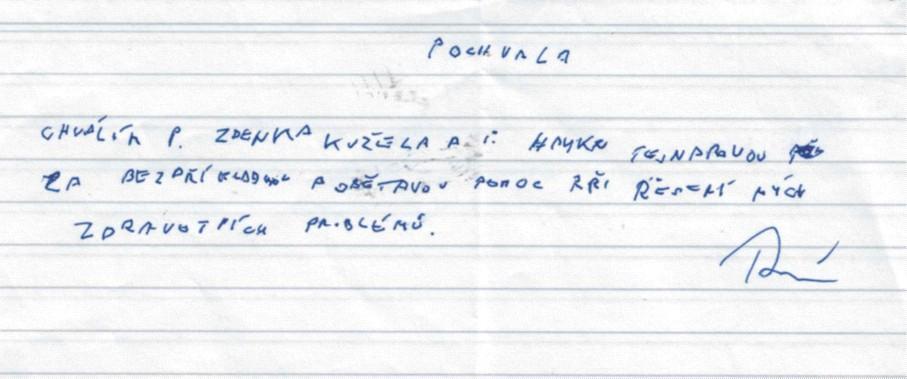 POCHVALA
CHVÁLÍM P. ZDENKA KUŽELA A P. HANKU
ZA BEZPŘÍKLADNOU A OBĚTAVOU POMOC PŘI ŘEŠENÍ MÝCH
ZDRAVOTNÍCH PROBLÉMŮ.